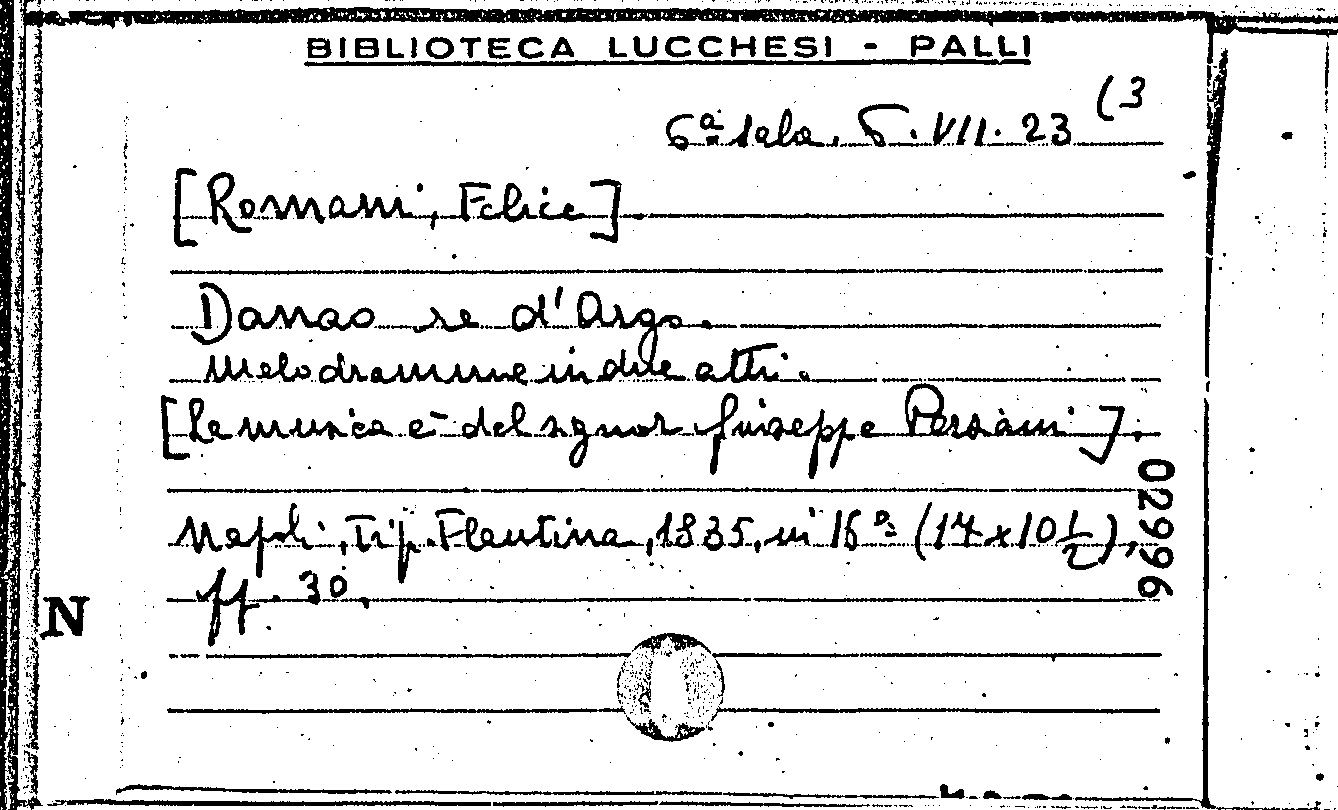 BIBLIOTECA LUCCHESI - PALLI
6ª sala, 6. VII. 23 (3
[Romani, Felice].
Danao re d'Argo.
Melodramme in due atti.
[La musica è del signor Giuseppe Persiani].
Napoli, Tip. Flautina, 1835, in 16º (14 x 10 1/2),
ff. 30.
02996
N